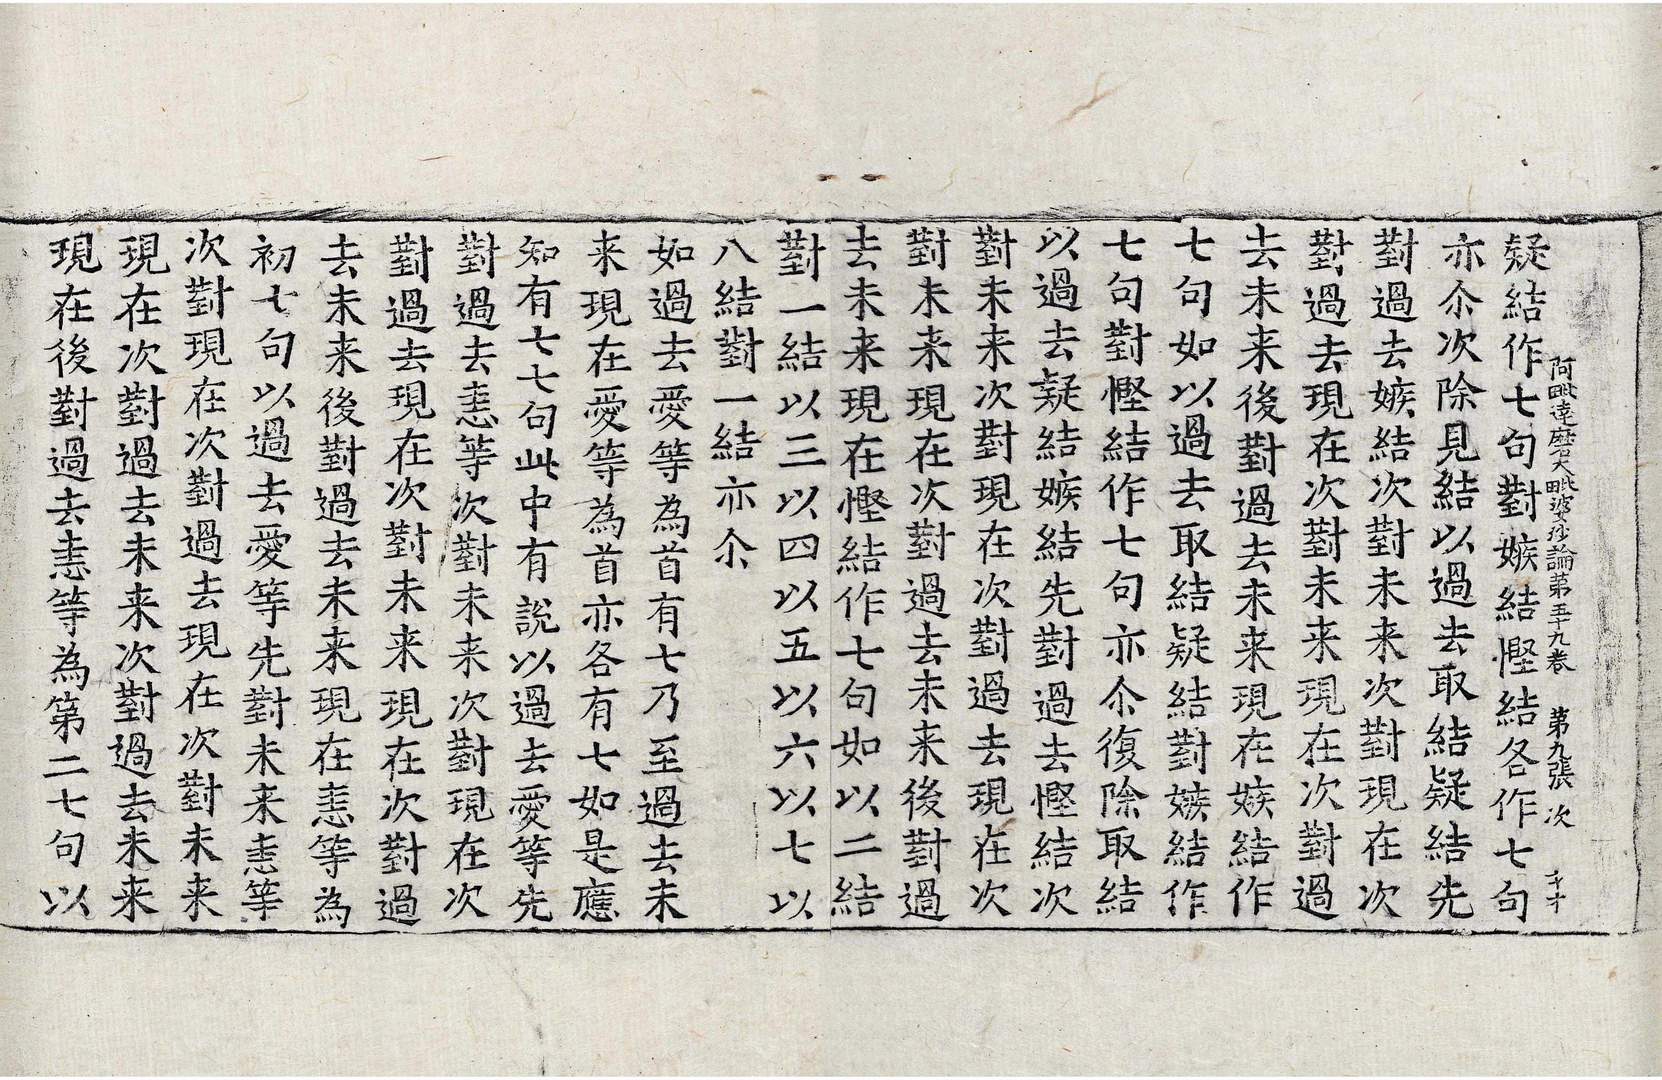 阿毗達磨大毗婆沙論第五十九卷　第九張　次
疑結作七句對嫉結慳結各作七句
亦尒次除見結以過去取結疑結先
對過去嫉結次對未来次對現在次
對過去現在次對未来現在次對過
去未来後對過去未来現在嫉結作
七句如以過去取結疑結對嫉結作
七句對慳結作七句亦尒復除取結
以過去疑結嫉結先對過去慳結次
對未来次對現在次對過去現在次
對未来現在次對過去未来後對過
去未来現在慳結作七句如以二結
對一結以三以四以五以六以七以
八結對一結亦尒
如過去愛等為首有七乃至過去未
来現在愛等為首亦各有七如是應
知有七七句此中有說以過去愛等先
對過去恚等次對未来次對現在次
對過去現在次對未来現在次對過
去未来後對過去未来現在恚等為
初七句以過去愛等先對未来恚等
次對現在次對過去現在次對未来
現在次對過去未来次對過去未来
現在後對過去恚等為第二七句以